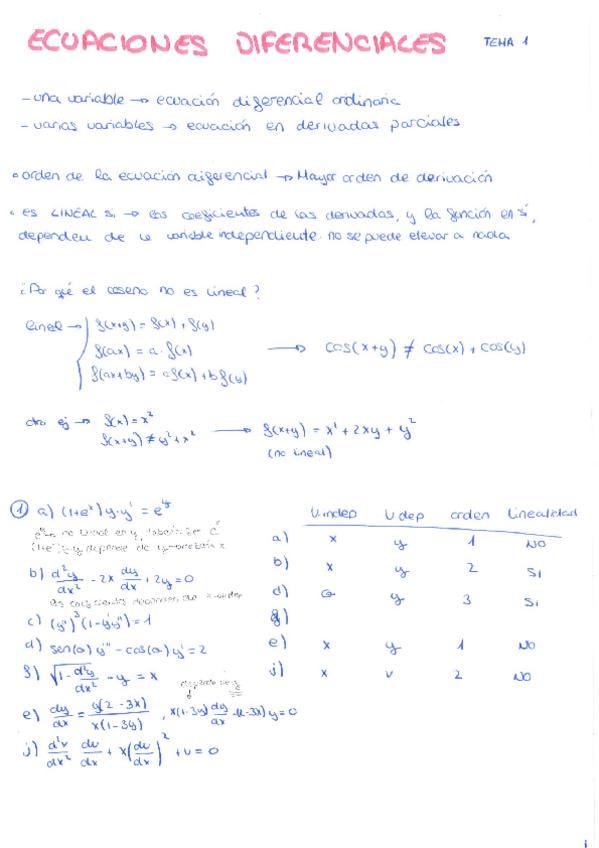 ECUACIONES DIFERENCIALES TEMA 1
- una variable → ecuación diferencial ordinaria
- varias variables → ecuación en derivadas parciales
• orden de la ecuación diferencial → Mayor orden de derivación
• es LINEAL si → los coeficientes de las derivadas, y la función en sí,
dependen de la variable independiente. no se puede elevar a nada
¿Por qué el coseno no es lineal?
lineal → f(x+y) = f(x) + f(y)
f(ax) = a · f(x) → cos(x+y) ≠ cos(x) + cos(y)
f(ax+by) = af(x) + bf(y)
otro ej → f(x) = x²
f(x+y) ≠ y² + x² → f(x+y) = x² + 2xy + y²
(no lineal)
① a) (1+eˣ) y · y' = eʸ
no lineal en y,
(1+eˣ) · y depende de
b) d²y/dx² - 2x dy/dx + 2y = 0
los coeficientes dependen de x
c) (y'')³ (1-y'y'') = 1
d) sen(θ) y''' - cos(θ) y' = 2
f) √(1 - d²y/dx²) - y = x
depende de y
e) dy/dx = y(2-3x)/x(1-3y) , x(1-3y) dy/dx - (2-3x) y = 0
j) d²v/dx² dv/dx + x(dv/dx)² + v = 0
V.indep V.dep orden Linealidad
a) x y 1 NO
b) x y 2 SI
d) θ y 3 SI
e) x y 1 NO
j) x v 2 NO
1